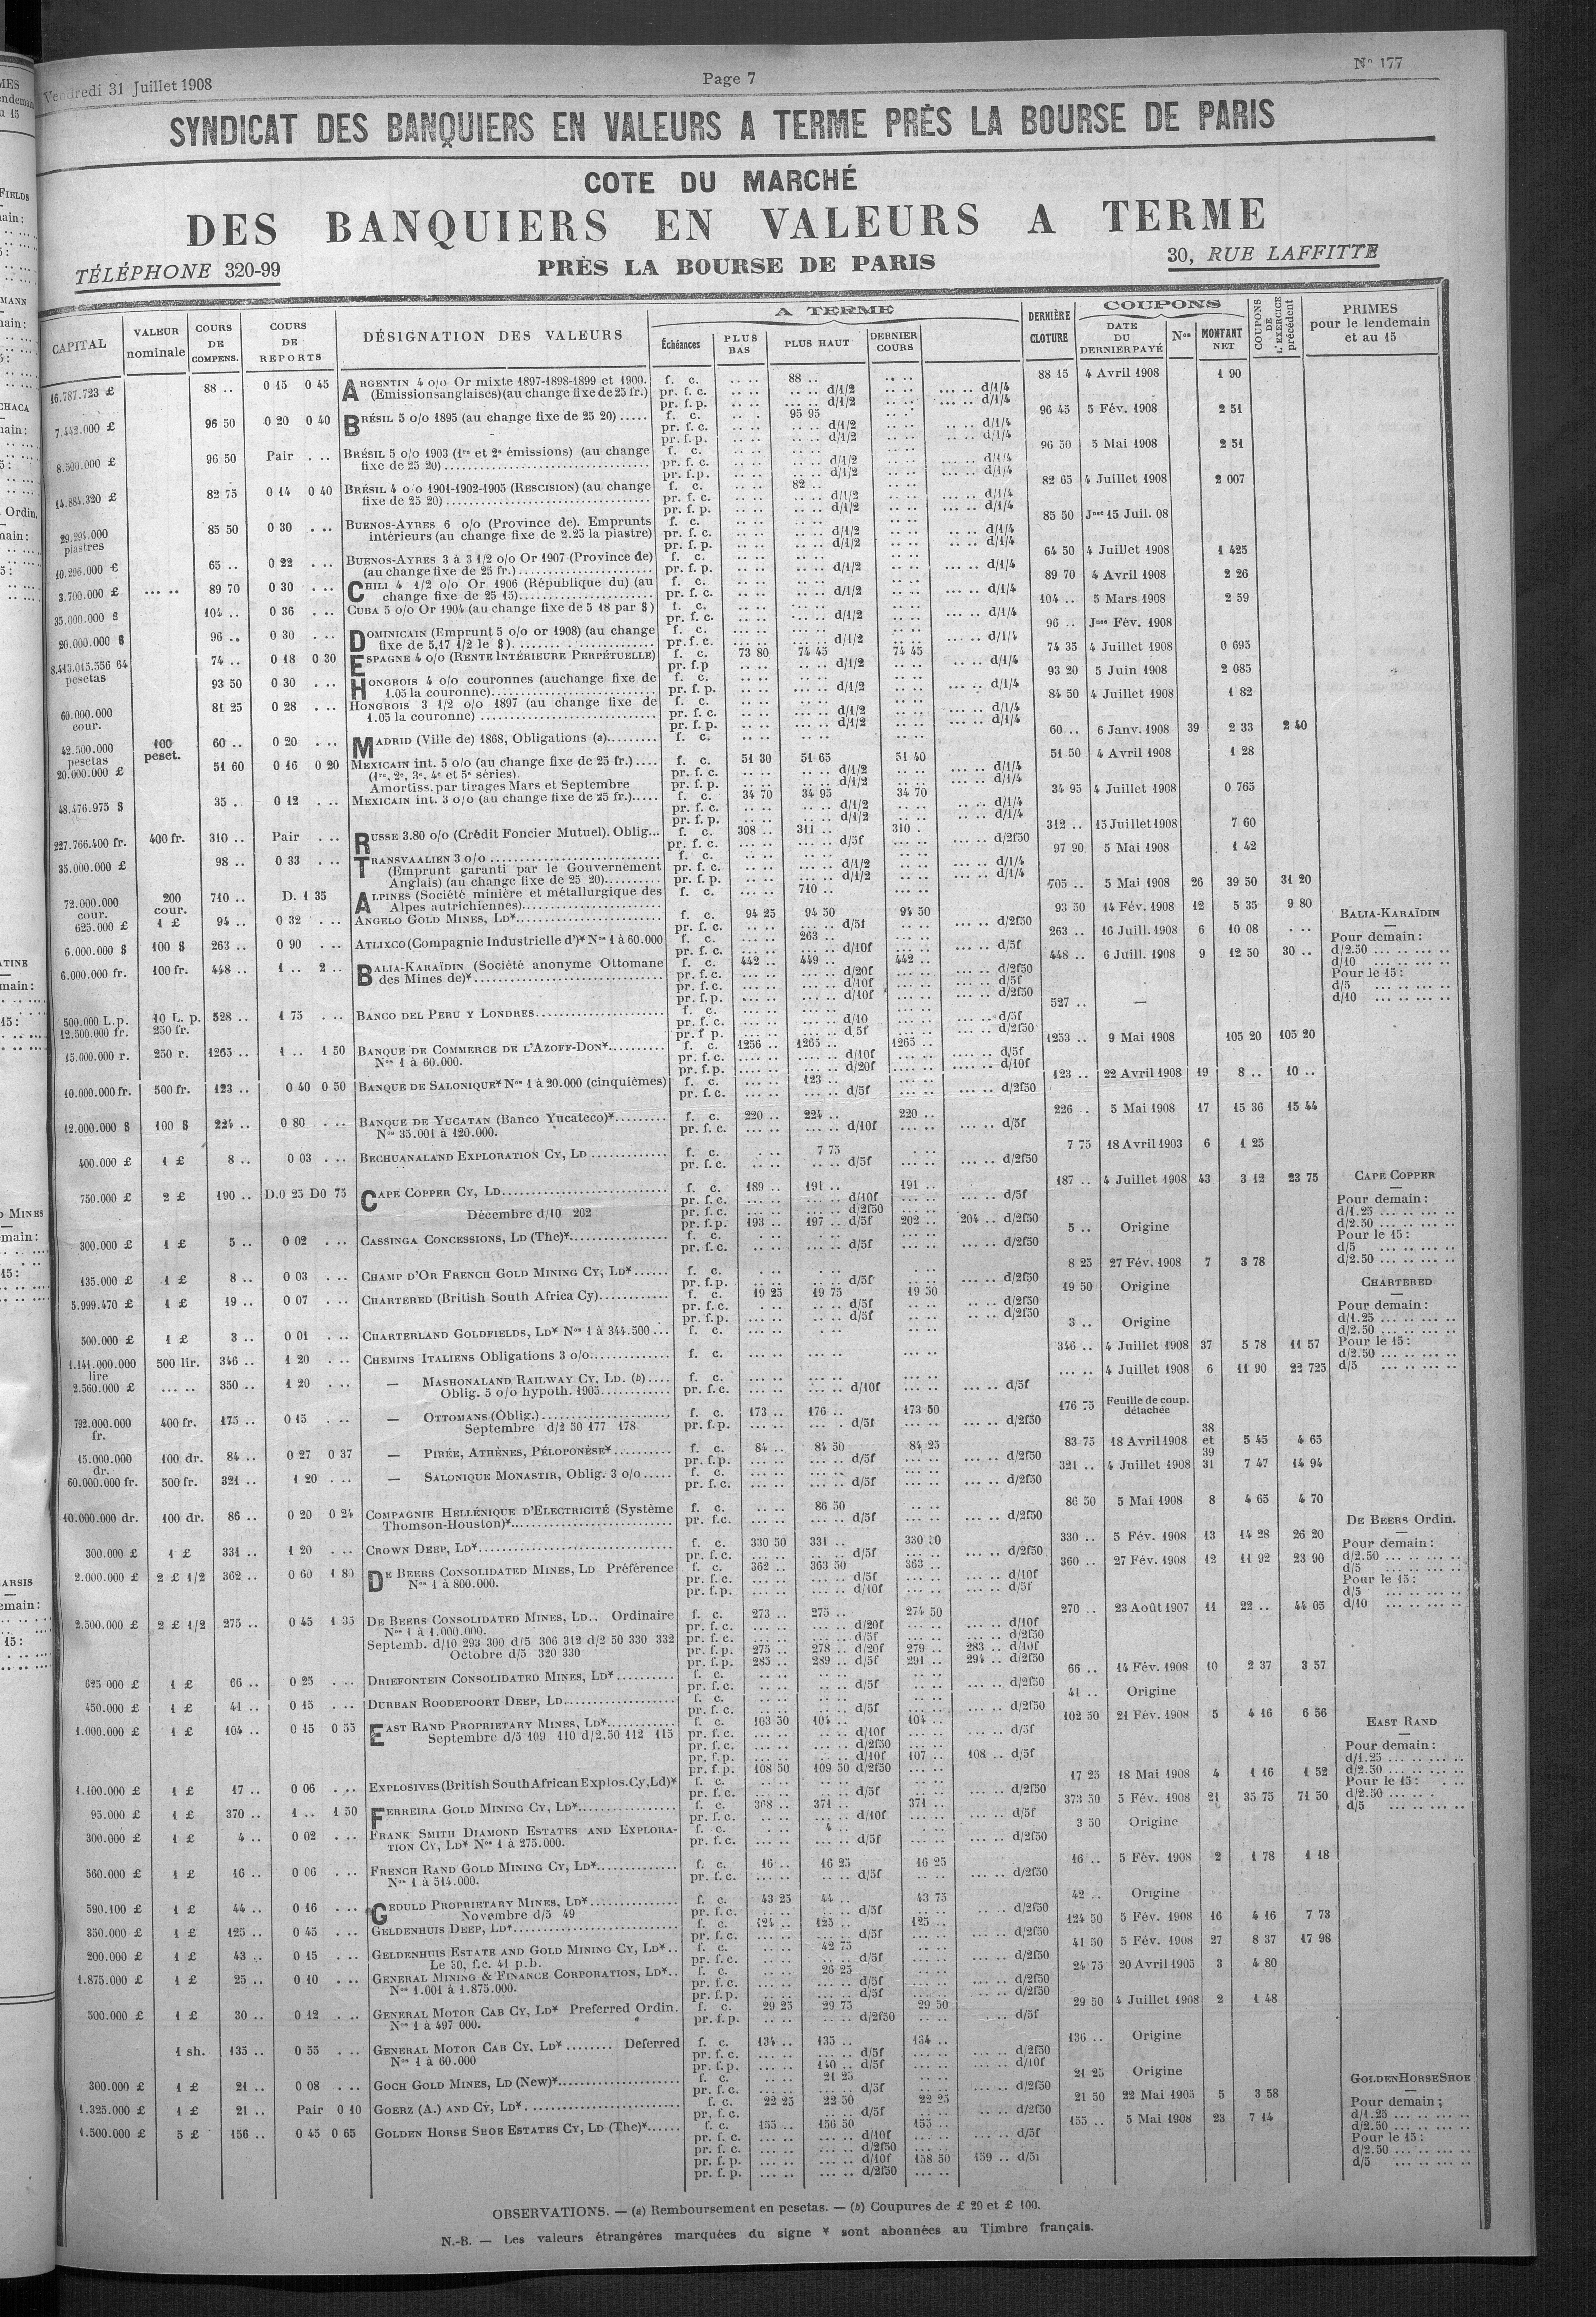 Vendredi 31 Juillet 1908
Page 7
N° 177
SYNDICAT DES BANQUIERS EN VALEURS A TERME PRÈS LA BOURSE DE PARIS
COTE DU MARCHÉ
DES BANQUIERS EN VALEURS A TERME
TÉLÉPHONE 320-99
PRÈS LA BOURSE DE PARIS
30, RUE LAFFITTE
CAPITAL
VALEUR nominale
COURS DE COMPENS.
COURS DE REPORTS
DÉSIGNATION DES VALEURS
A TERME
Échéances
PLUS BAS
PLUS HAUT
DERNIER COURS
DERNIÈRE CLOTURE
COUPONS
DATE DU DERNIER PAYÉ
Nos
MONTANT NET
COUPONS DE L'EXERCICE précédent
PRIMES pour le lendemain et au 15
16.787.723 £ 88 .. 0 15 0 45 ARGENTIN 4 o/o Or mixte 1897-1898-1899 et 1900. f. c. 88 .. 88 15 4 Avril 1908 1 90
(Emissions anglaises) (au change fixe de 25 fr.) pr. f. c. d/1/2 d/1/4
pr. f. p. d/1/2 d/1/4
7.442.000 £ 96 50 0 20 0 40 BRÉSIL 5 o/o 1895 (au change fixe de 25 20) ..... f. c. 95 95 96 45 5 Fév. 1908 2 51
8.500.000 £ 96 50 Pair BRÉSIL 5 o/o 1903 (1re et 2e émissions) (au change f. c. 96 50 5 Mai 1908 2 51
fixe de 25 20)
14.884.320 £ 82 75 0 14 0 40 BRÉSIL 4 o/o 1901-1902-1905 (RESCISION) (au change f. c. 82 .. 82 65 4 Juillet 1908 2 007
fixe de 25 20)
29.294.000 piastres 85 50 0 30 BUENOS-AYRES 6 o/o (Province de). Emprunts f. c. 85 50 Jnce 15 Juil. 08
intérieurs (au change fixe de 2.25 la piastre)
10.296.000 £ 65 .. 0 22 BUENOS-AYRES 3 à 3 1/2 o/o Or 1907 (Province de) f. c. 64 50 4 Juillet 1908 1 425
(au change fixe de 25 fr.)
3.700.000 £ 89 70 0 30 CHILI 4 1/2 o/o Or 1906 (République du) (au f. c. 89 70 4 Avril 1908 2 26
change fixe de 25 15)
35.000.000 $ 104 .. 0 36 CUBA 5 o/o Or 1904 (au change fixe de 5 18 par $) f. c. 104 .. 5 Mars 1908 2 59
20.000.000 $ 96 .. 0 30 DOMINICAIN (Emprunt 5 o/o or 1908) (au change f. c. 96 .. Jnce Fév. 1908
fixe de 5,17 1/2 le $)
8.413.015.556 64 pesetas 74 .. 0 18 0 30 ESPAGNE 4 o/o (RENTE INTÉRIEURE PERPÉTUELLE) f. c. 73 80 74 45 74 45 74 35 4 Juillet 1908 0 695
93 50 0 30 HONGROIS 4 o/o couronnes (au change fixe de f. c. 93 20 5 Juin 1908 2 085
1.05 la couronne)
60.000.000 cour. 81 25 0 28 HONGROIS 3 1/2 o/o 1897 (au change fixe de f. c. 84 50 4 Juillet 1908 1 82
1.05 la couronne)
42.500.000 pesetas 100 peset. 60 .. 0 20 MADRID (Ville de) 1868, Obligations (a) f. c. 60 .. 6 Janv. 1908 39 2 33 2 40
20.000.000 £ 51 60 0 16 0 20 MEXICAIN int. 5 o/o (au change fixe de 25 fr.) f. c. 51 30 51 65 51 40 51 50 4 Avril 1908 1 28
(1re, 2e, 3e, 4e et 5e séries).
Amortiss. par tirages Mars et Septembre
48.476.975 $ 35 .. 0 12 MEXICAIN int. 3 o/o (au change fixe de 25 fr.) f. c. 34 70 34 95 34 70 34 95 4 Juillet 1908 0 765
227.766.400 fr. 400 fr. 310 .. Pair RUSSE 3.80 o/o (Crédit Foncier Mutuel). Oblig... f. c. 308 .. 311 .. 310 . 312 .. 15 Juillet 1908 7 60
35.000.000 £ 98 .. 0 33 TRANSVAALIEN 3 o/o f. c. 97 90 5 Mai 1908 1 42
(Emprunt garanti par le Gouvernement
Anglais) (au change fixe de 25 20)
72.000.000 cour. 200 cour. 710 .. D. 1 35 ALPINES (Société minière et métallurgique des f. c. 710 .. 705 .. 5 Mai 1908 26 39 50 31 20
Alpes autrichiennes)
625.000 £ 1 £ 94 .. 0 32 ANGELO GOLD MINES, LD* f. c. 94 25 94 50 94 50 93 50 14 Fév. 1908 12 5 35 9 80
6.000.000 $ 100 $ 263 .. 0 90 ATLIXCO (Compagnie Industrielle d')* Nos 1 à 60.000 f. c. 263 .. 263 .. 16 Juill. 1908 6 10 08
6.000.000 fr. 100 fr. 448 .. 1 .. 2 .. BALIA-KARAÏDIN (Société anonyme Ottomane f. c. 442 .. 449 .. 442 .. 448 .. 6 Juill. 1908 9 12 50 30 ..
des Mines de)*
BALIA-KARAÏDIN
Pour demain :
d/2.50
d/10
Pour le 15 :
d/5
d/10
500.000 L.p. 12.500.000 fr. 10 L. p. 250 fr. 528 .. 1 75 BANCO DEL PERU Y LONDRES f. c. 527 .. —
15.000.000 r. 250 r. 1265 .. 1 .. 1 50 BANQUE DE COMMERCE DE L'AZOFF-DON* f. c. 1256 .. 1265 .. 1265 .. 1253 .. 9 Mai 1908 105 20 105 20
Nos 1 à 60.000.
10.000.000 fr. 500 fr. 123 .. 0 40 0 50 BANQUE DE SALONIQUE* Nos 1 à 20.000 (cinquièmes) f. c. 123 .. 123 .. 22 Avril 1908 19 8 .. 10 ..
12.000.000 $ 100 $ 224 .. 0 80 BANQUE DE YUCATAN (Banco Yucateco)* f. c. 220 .. 224 .. 220 .. 226 .. 5 Mai 1908 17 15 36 15 44
Nos 35.001 à 120.000.
400.000 £ 1 £ 8 .. 0 03 BECHUANALAND EXPLORATION CY, LD f. c. 7 75 7 75 18 Avril 1903 6 1 25
750.000 £ 2 £ 190 .. D.0 25 D0 75 CAPE COPPER CY, LD f. c. 189 .. 191 .. 191 .. 187 .. 4 Juillet 1908 43 3 12 23 75
Décembre d/10 202
pr. f. p. 193 .. 197 .. d/5f 202 .. 204 .. d/2f50
CAPE COPPER
Pour demain :
d/1.25
d/2.50
Pour le 15 :
d/5
d/2.50
300.000 £ 1 £ 5 .. 0 02 CASSINGA CONCESSIONS, LD (The)* f. c. 5 .. Origine
135.000 £ 1 £ 8 .. 0 03 CHAMP D'OR FRENCH GOLD MINING CY, LD* f. c. 8 25 27 Fév. 1908 7 3 78
5.999.470 £ 1 £ 19 .. 0 07 CHARTERED (British South Africa Cy) f. c. 19 25 19 75 19 50 19 50 Origine
CHARTERED
Pour demain :
d/1.25
d/2.50
Pour le 15 :
d/2.50
d/5
500.000 £ 1 £ 3 .. 0 01 CHARTERLAND GOLDFIELDS, LD* Nos 1 à 344.500 ... f. c. 3 .. Origine
1.141.000.000 lire 500 lir. 346 .. 1 20 CHEMINS ITALIENS Obligations 3 o/o f. c. 346 .. 4 Juillet 1908 37 5 78 11 57
2.560.000 £ 350 .. 1 20 — MASHONALAND RAILWAY CY, LD. (b) f. c. 4 Juillet 1908 6 11 90 22 725
Oblig. 5 o/o hypoth. 1905
792.000.000 fr. 400 fr. 175 .. 0 15 — OTTOMANS (Oblig.) f. c. 173 .. 176 .. 173 50 176 75 Feuille de coup. détachée
Septembre d/2 50 177 178
15.000.000 dr. 100 dr. 84 .. 0 27 0 37 — PIRÉE, ATHÈNES, PÉLOPONÈSE* f. c. 84 .. 84 50 84 25 83 75 18 Avril 1908 38 et 39 5 45 4 65
60.000.000 fr. 500 fr. 321 .. 1 20 — SALONIQUE MONASTIR, Oblig. 3 o/o f. c. 321 .. 4 Juillet 1908 31 7 47 14 94
10.000.000 dr. 100 dr. 86 .. 0 20 0 24 COMPAGNIE HELLÉNIQUE D'ELECTRICITÉ (Système f. c. 86 50 86 50 5 Mai 1908 8 4 65 4 70
Thomson-Houston)*
300.000 £ 1 £ 331 .. 1 20 CROWN DEEP, LD* f. c. 330 50 331 .. 330 50 330 .. 5 Fév. 1908 13 14 28 26 20
2.000.000 £ 2 £ 1/2 362 .. 0 60 1 80 DE BEERS CONSOLIDATED MINES, LD Préférence f. c. 362 .. 363 50 363 .. 360 .. 27 Fév. 1908 12 11 92 23 90
Nos 1 à 800.000.
DE BEERS Ordin.
Pour demain :
d/2.50
d/5
Pour le 15 :
d/5
d/10
2.500.000 £ 2 £ 1/2 275 .. 0 45 1 35 DE BEERS CONSOLIDATED MINES, LD.. Ordinaire f. c. 273 .. 275 .. 274 50 270 .. 23 Août 1907 11 22 .. 44 05
Nos 1 à 1.000.000.
Septemb. d/10 293 300 d/5 306 312 d/2 50 330 332
Octobre d/5 320 330
pr. f. p. 275 .. 278 .. d/20f 279 .. 283 .. d/10f
pr. f. p. 285 .. 289 .. d/5f 291 .. 294 .. d/2f50
625 000 £ 1 £ 66 .. 0 25 DRIEFONTEIN CONSOLIDATED MINES, LD* f. c. 66 .. 14 Fév. 1908 10 2 37 3 57
450.000 £ 1 £ 41 .. 0 15 DURBAN ROODEPOORT DEEP, LD f. c. 41 .. Origine
1.000.000 £ 1 £ 104 .. 0 15 0 55 EAST RAND PROPRIETARY MINES, LD* f. c. 103 50 104 .. 104 .. 102 50 21 Fév. 1908 5 4 16 6 56
Septembre d/5 109 110 d/2.50 112 115
pr. f. p. d/10f 107 .. 108 .. d/5f
pr. f. p. 108 50 109 50 d/2f50
EAST RAND
Pour demain :
d/1.25
d/2.50
Pour le 15 :
d/2.50
d/5
1.100.000 £ 1 £ 17 .. 0 06 EXPLOSIVES (British South African Explos. Cy, Ld)* f. c. 17 25 18 Mai 1908 4 1 16 1 52
95.000 £ 1 £ 370 .. 1 .. 1 50 FERREIRA GOLD MINING CY, LD* f. c. 368 .. 371 .. 371 .. 373 50 5 Fév. 1908 21 35 75 71 50
300.000 £ 1 £ 4 .. 0 02 FRANK SMITH DIAMOND ESTATES AND EXPLORA- f. c. 4 .. 3 50 Origine
TION CY, LD* Nos 1 à 275.000.
560.000 £ 1 £ 16 .. 0 06 FRENCH RAND GOLD MINING CY, LD* f. c. 16 .. 16 25 16 25 16 .. 5 Fév. 1908 2 1 78 1 18
Nos 1 à 514.000.
590.100 £ 1 £ 44 .. 0 16 GEDULD PROPRIETARY MINES, LD* f. c. 43 25 44 .. 43 75 42 .. Origine
Novembre d/5 49
350.000 £ 1 £ 125 .. 0 45 GELDENHUIS DEEP, LD* f. c. 124 .. 125 .. 125 .. 124 50 5 Fév. 1908 16 4 16 7 73
200.000 £ 1 £ 43 .. 0 15 GELDENHUIS ESTATE AND GOLD MINING CY, LD* f. c. 42 75 41 50 5 Fév. 1908 27 8 37 17 98
Le 30, f.c. 41 p.b.
1.875.000 £ 1 £ 25 .. 0 10 GENERAL MINING & FINANCE CORPORATION, LD* f. c. 26 25 24 75 20 Avril 1905 3 4 80
Nos 1.001 à 1.875.000.
500.000 £ 1 £ 30 .. 0 12 GENERAL MOTOR CAB CY, LD* Preferred Ordin. f. c. 29 25 29 75 29 50 29 50 4 Juillet 1908 2 1 48
Nos 1 à 497 000.
1 sh. 135 .. 0 55 GENERAL MOTOR CAB CY, LD* ........ Deferred f. c. 134 .. 135 .. 134 .. 136 .. Origine
Nos 1 à 60.000
pr. f. p. 140 .. d/5f d/10f
300.000 £ 1 £ 21 .. 0 08 GOCH GOLD MINES, LD (New)* f. c. 21 25 21 25 Origine
1.325.000 £ 1 £ 21 .. Pair 0 10 GOERZ (A.) AND CY, LD* f. c. 22 25 22 50 22 25 21 50 22 Mai 1905 5 3 58
1.500.000 £ 5 £ 156 .. 0 45 0 65 GOLDEN HORSE SHOE ESTATES CY, LD (The)* f. c. 155 .. 156 50 155 .. 155 .. 5 Mai 1908 23 7 14
pr. f. p. d/10f 158 50 159 ..
pr. f. p. d/2f50
GOLDEN HORSE SHOE
Pour demain ;
d/1.25
d/2.50
Pour le 15 :
d/2.50
d/5
OBSERVATIONS. — (a) Remboursement en pesetas. — (b) Coupures de £ 20 et £ 100.
N.-B. — Les valeurs étrangères marquées du signe * sont abonnées au Timbre français.